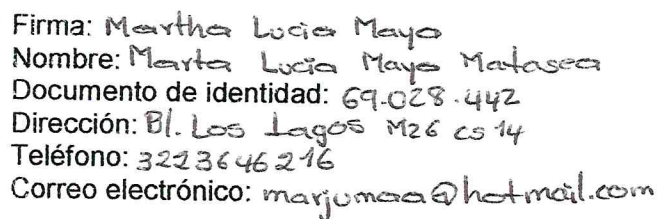 Firma: Martha Lucia Mayo
Nombre: Marta Lucia Mayo Matasea
Documento de identidad: 69.028.442
Dirección: Bl. Los Lagos M26 cs 14
Teléfono: 3223646216
Correo electrónico: marjumaa@hotmail.com